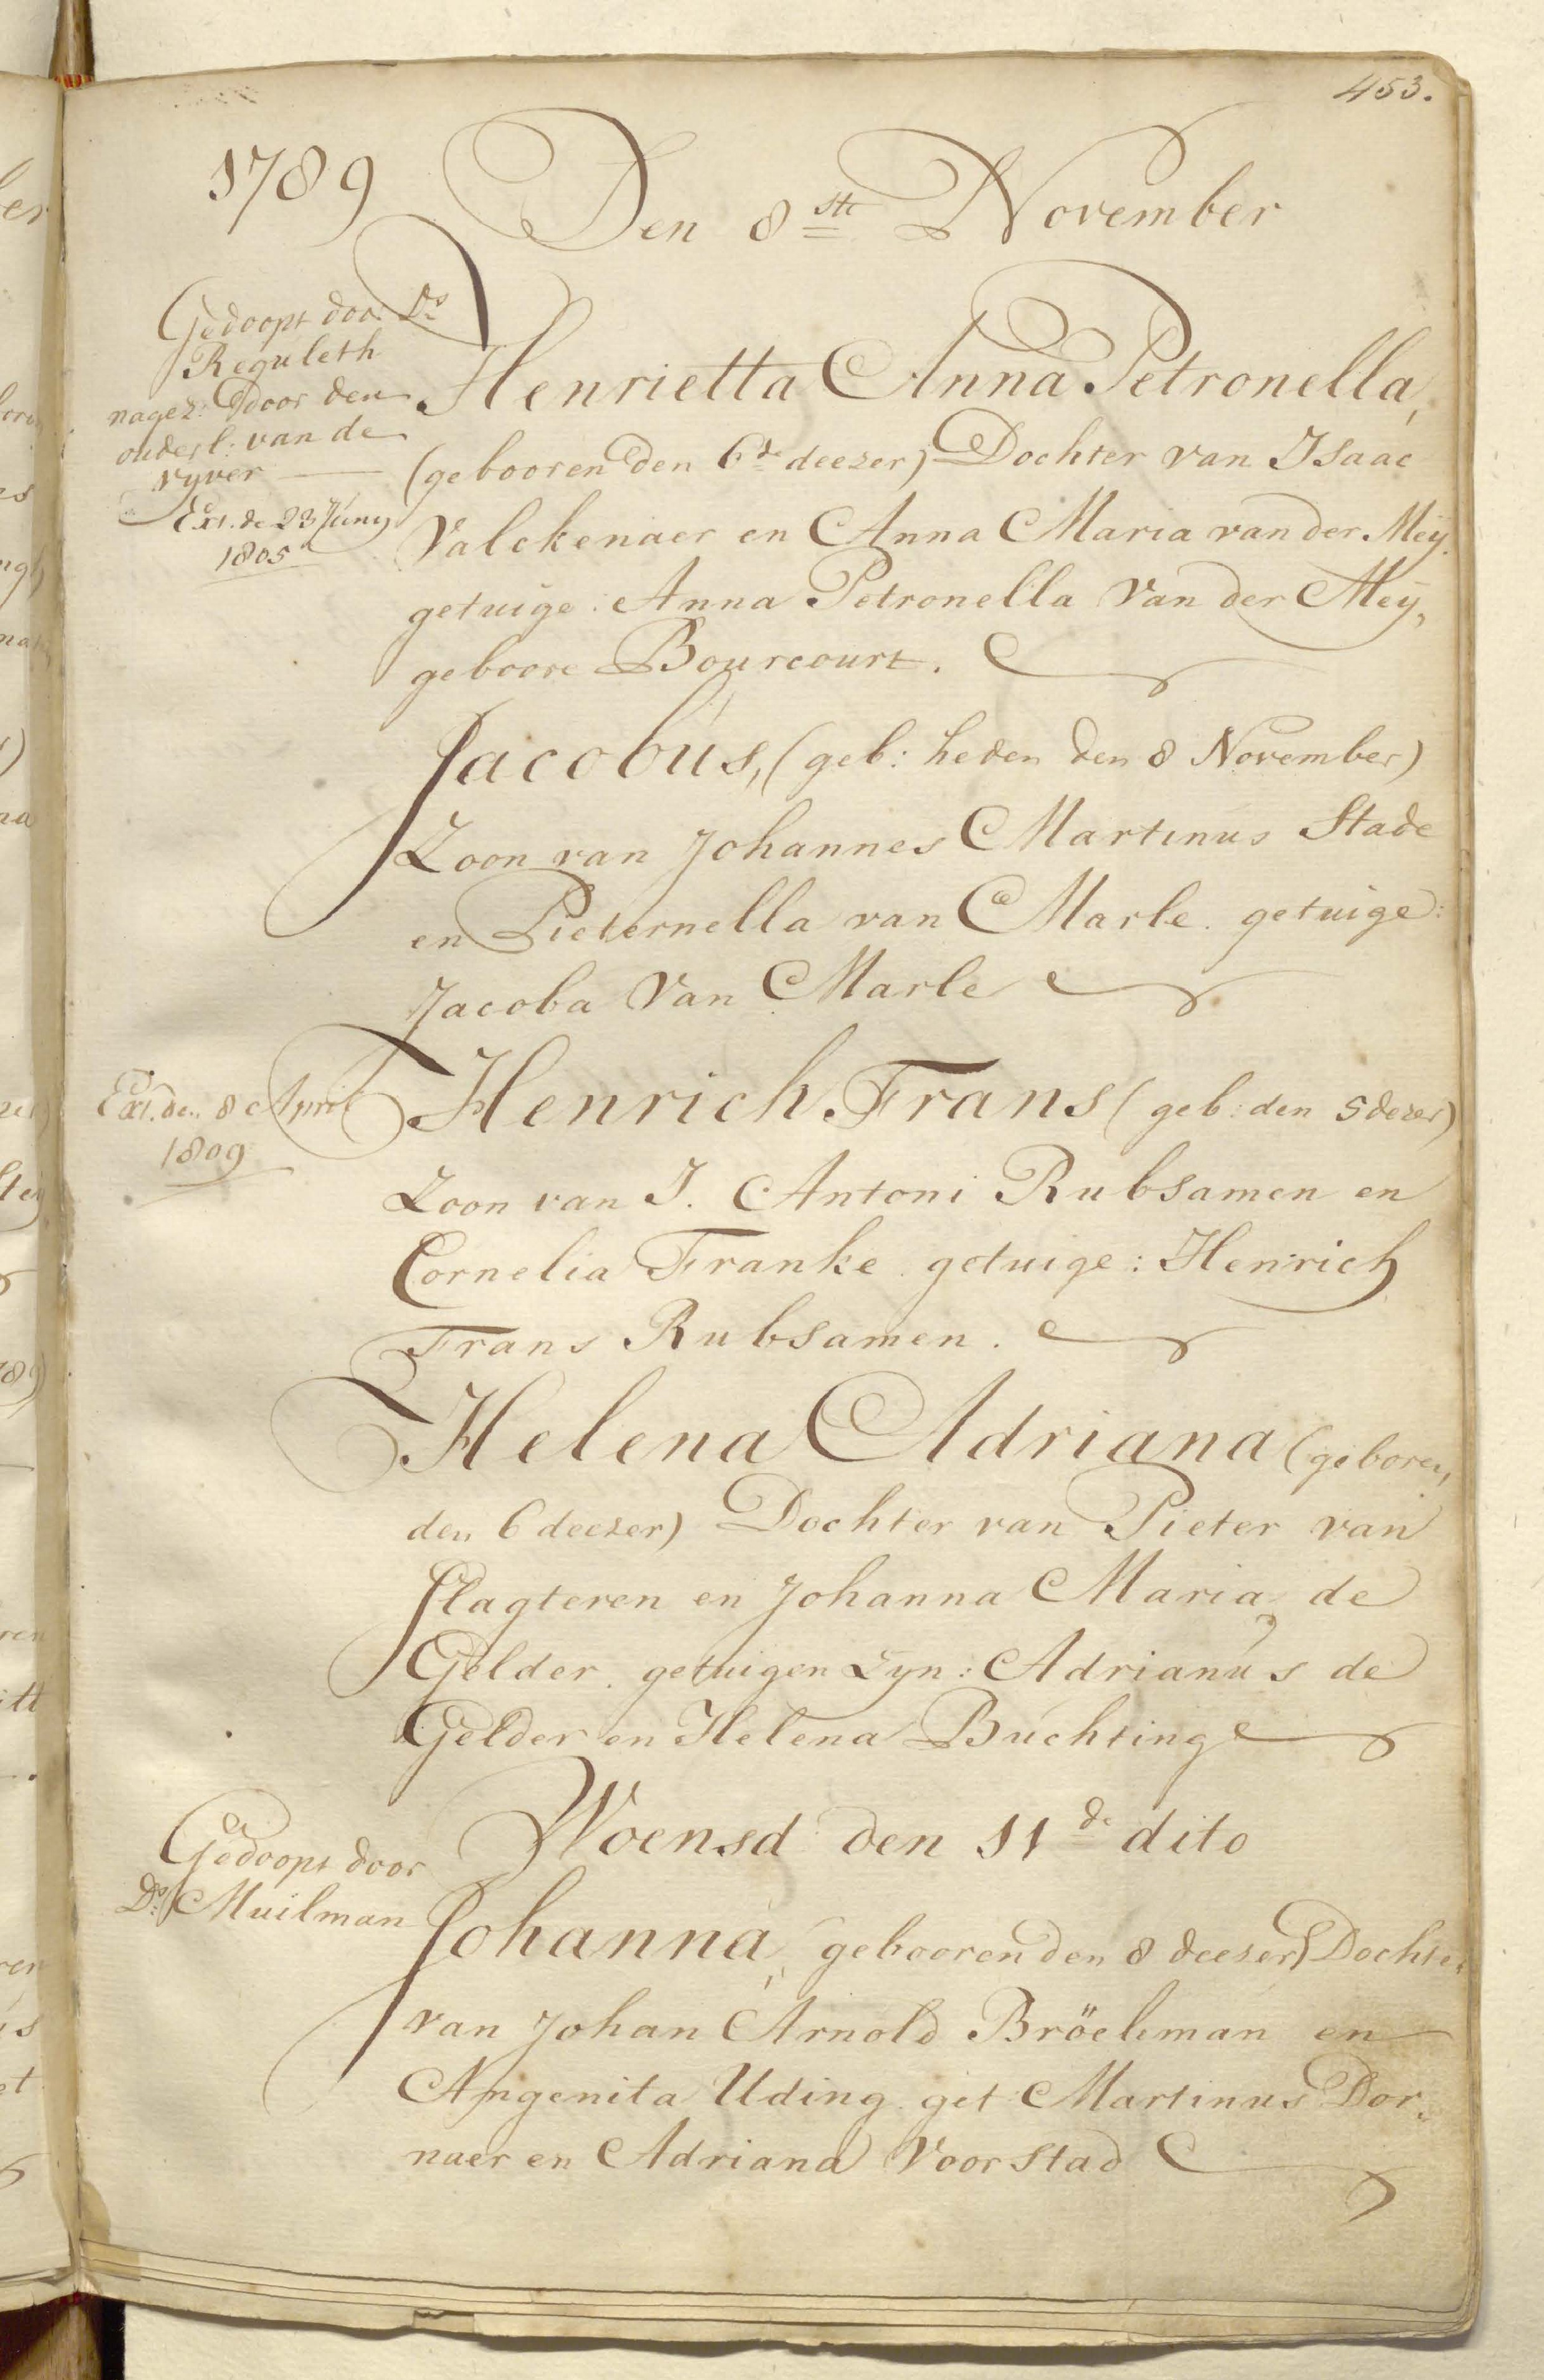 453.
1789 Den 8ste November
Gedoopt door Ds
Reguleth
nagez: door den
ouderl: van de
vyver
Ext. de 23 Juny
1805
Henrietta Anna Petronella,
(gebooren den 6de deezer) Dochter van Isaac
Valckenaer en Anna Maria van der Meÿ.
getuige: Anna Petronella Van der Meÿ,
geboore Bourcourt.
Jacobus, (geb: heden den 8 November)
Zoon van Johannes Martinus Stade
en Pieternella van Marle. getuige:
Jacoba Van Marle
Ext. den 8 April
1809
Henrich Frans (geb: den 5 dezer)
Zoon van J. Antoni Rubsamen en
Cornelia Franke. getuige: Henrich
Frans Rubsamen.
Helena Adriana (geboren,
den 6 deezer) Dochter van Pieter van
Slagteren en Johanna Maria de
Gelder. getuigen zyn: Adrianus de
Gelder en Helena Buchting
Woensd den 11de dito
Gedoopt door
Ds: Muilman
Johanna, gebooren den 8 deezer) Dochter
van Johan Arnold Bröckman en
Angenita Uding. get: Martinus Dor-
naer en Adriana Voorstad